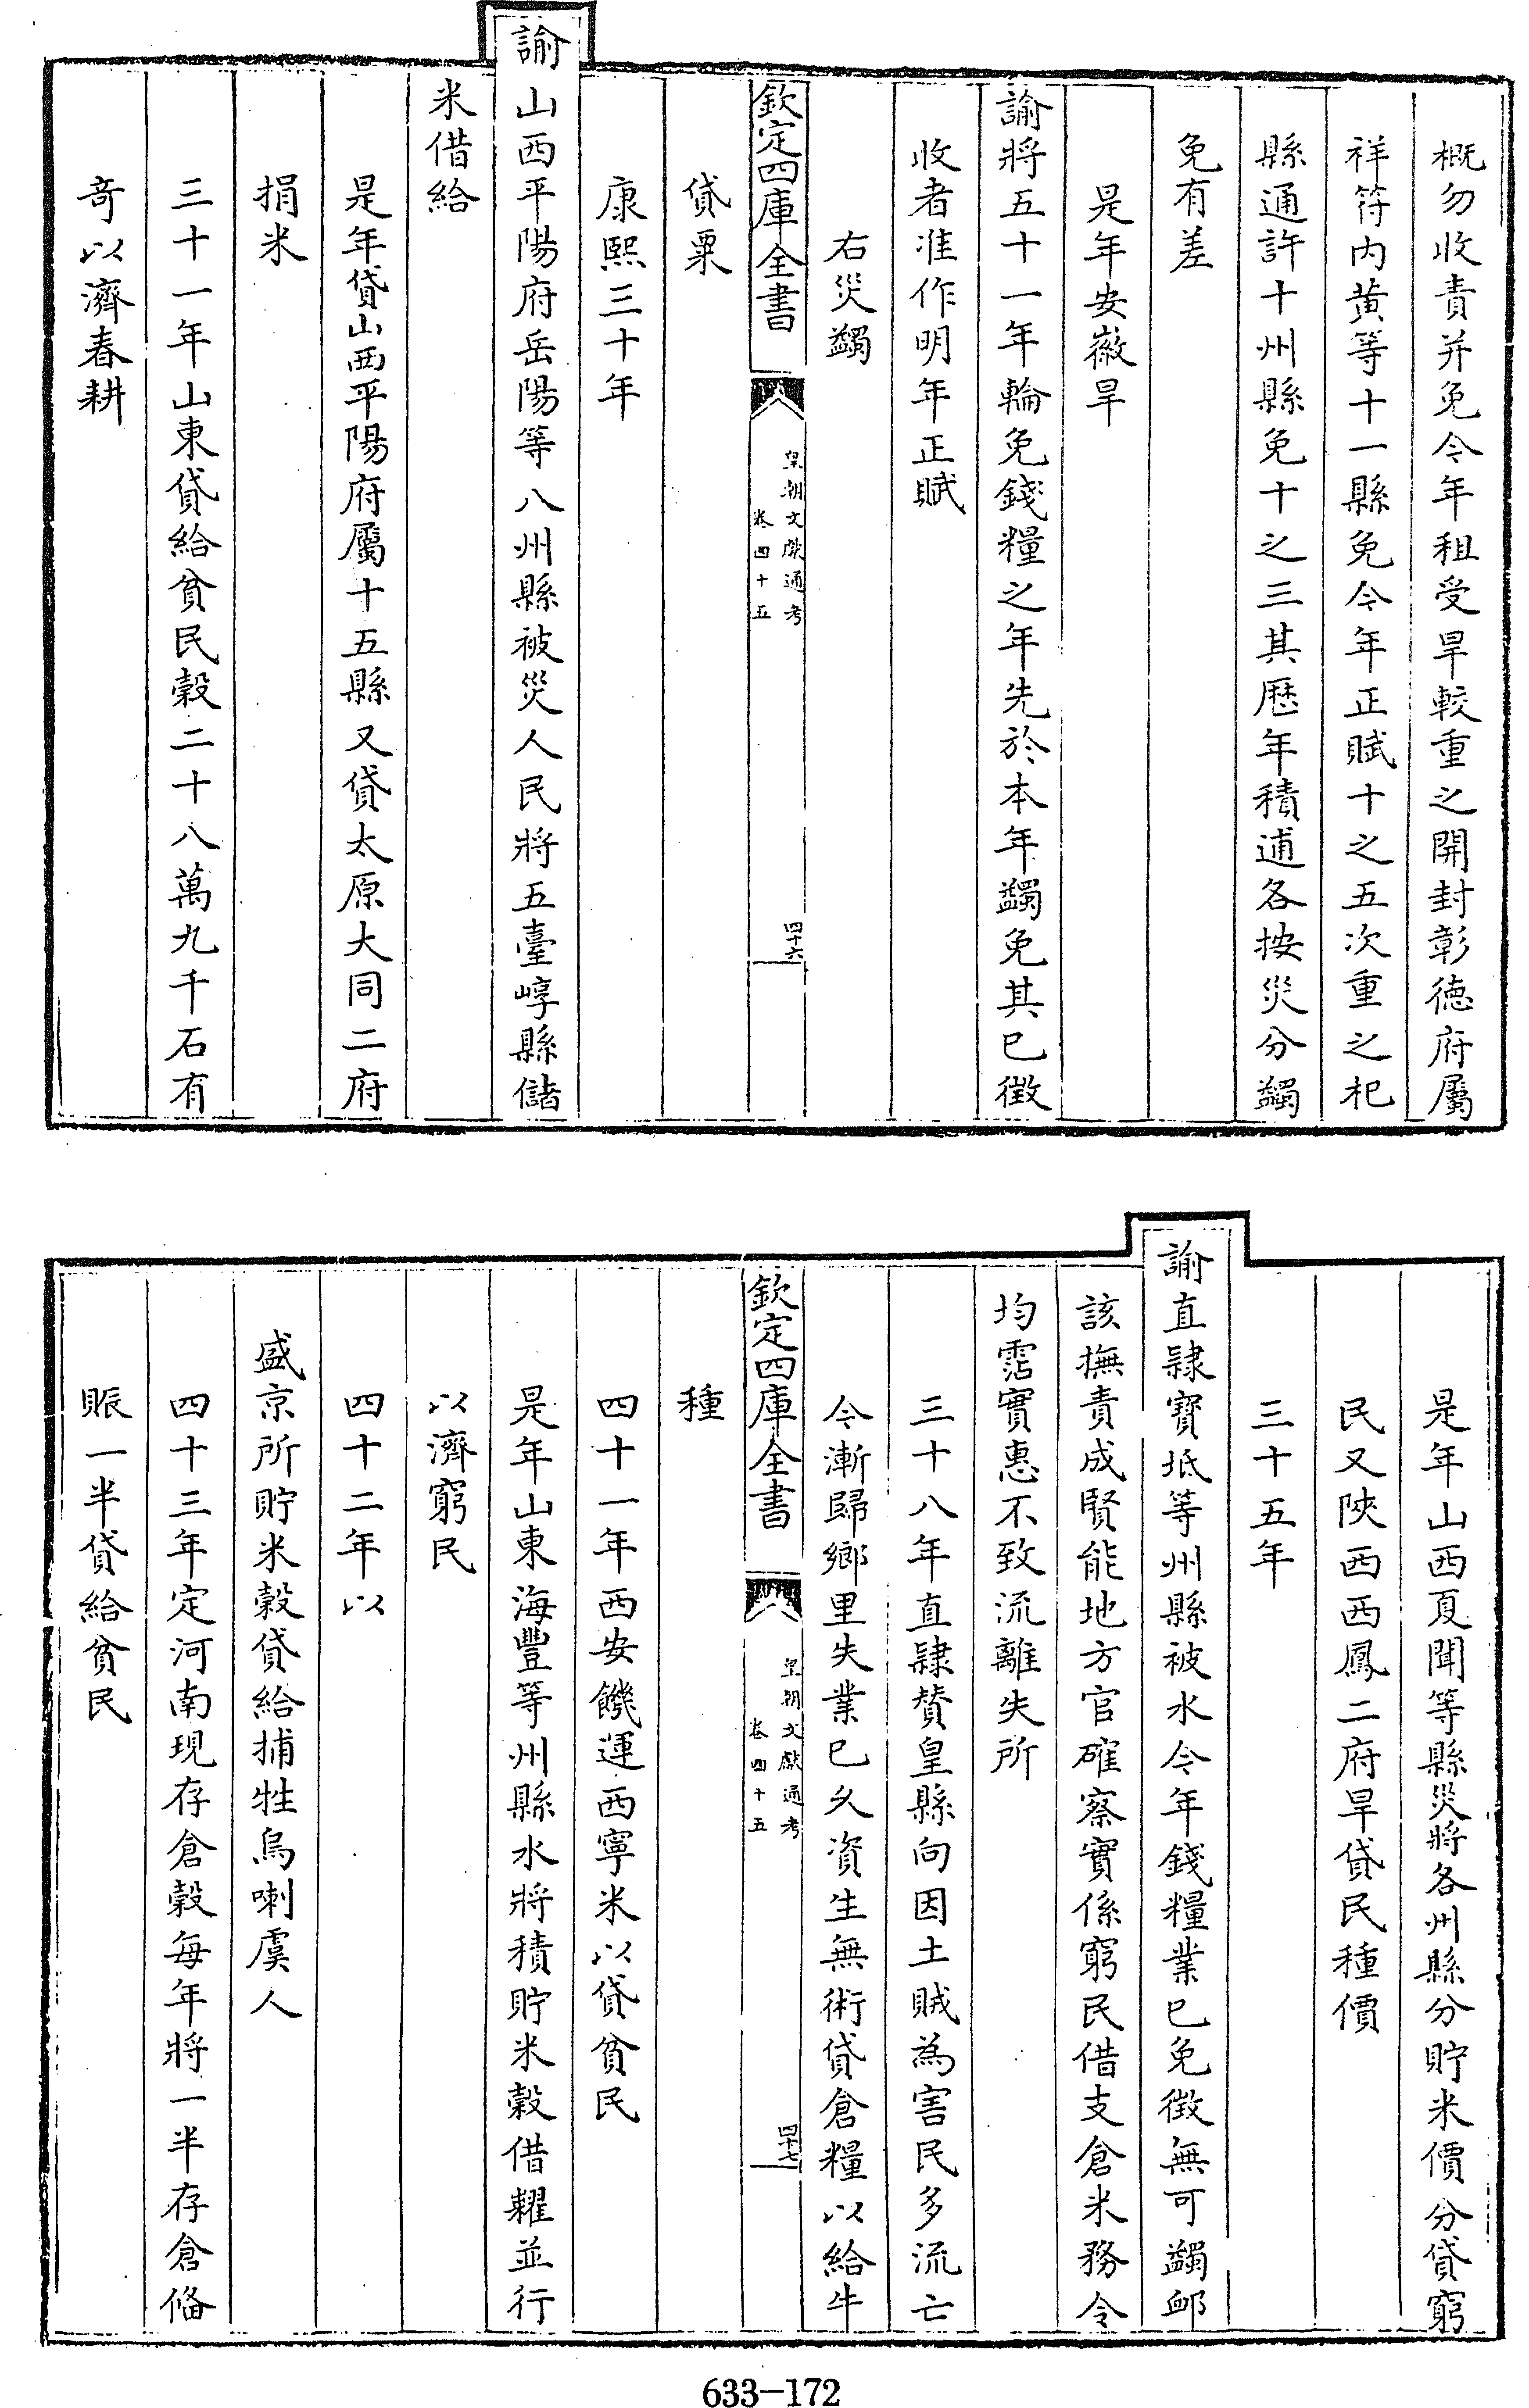 概勿收責并免今年租受旱較重之開封彰徳府屬
祥符内黄等十一縣免今年正賦十之五次重之杞
縣通許十州縣免十之三其歴年積逋各按災分蠲
免有差
是年安徽旱
諭將五十一年輪免錢糧之年先於本年蠲免其已徵
收者准作明年正賦
右災蠲
欽定四庫全書
皇朝文獻通考
卷四十五
四十六
貸粟
康熙三十年
諭山西平陽府岳陽等八州縣被災人民將五臺崞縣儲
米借給
是年貸山西平陽府屬十五縣又貸太原大同二府
捐米
三十一年山東貸給貧民穀二十八萬九千石有
竒以濟春耕
是年山西夏聞等縣災將各州縣分貯米價分貸窮
民又陜西西鳳二府旱貸民種價
三十五年
諭直隷寶坻等州縣被水今年錢糧業已免徵無可蠲卹
該撫責成賢能地方官確察實係窮民借支倉米務令
均霑實惠不致流離失所
三十八年直隷賛皇縣向因土賊為害民多流亡
今漸歸鄉里失業已久資生無術貸倉糧以給牛
欽定四庫全書
皇朝文獻通考
卷四十五
四十七
種
四十一年西安饑運西寧米以貸貧民
是年山東海豐等州縣水將積貯米穀借糶並行
以濟窮民
四十二年以
盛京所貯米穀貸給捕牲烏喇虞人
四十三年定河南現存倉穀每年將一半存倉俻
賑一半貸給貧民
633-172